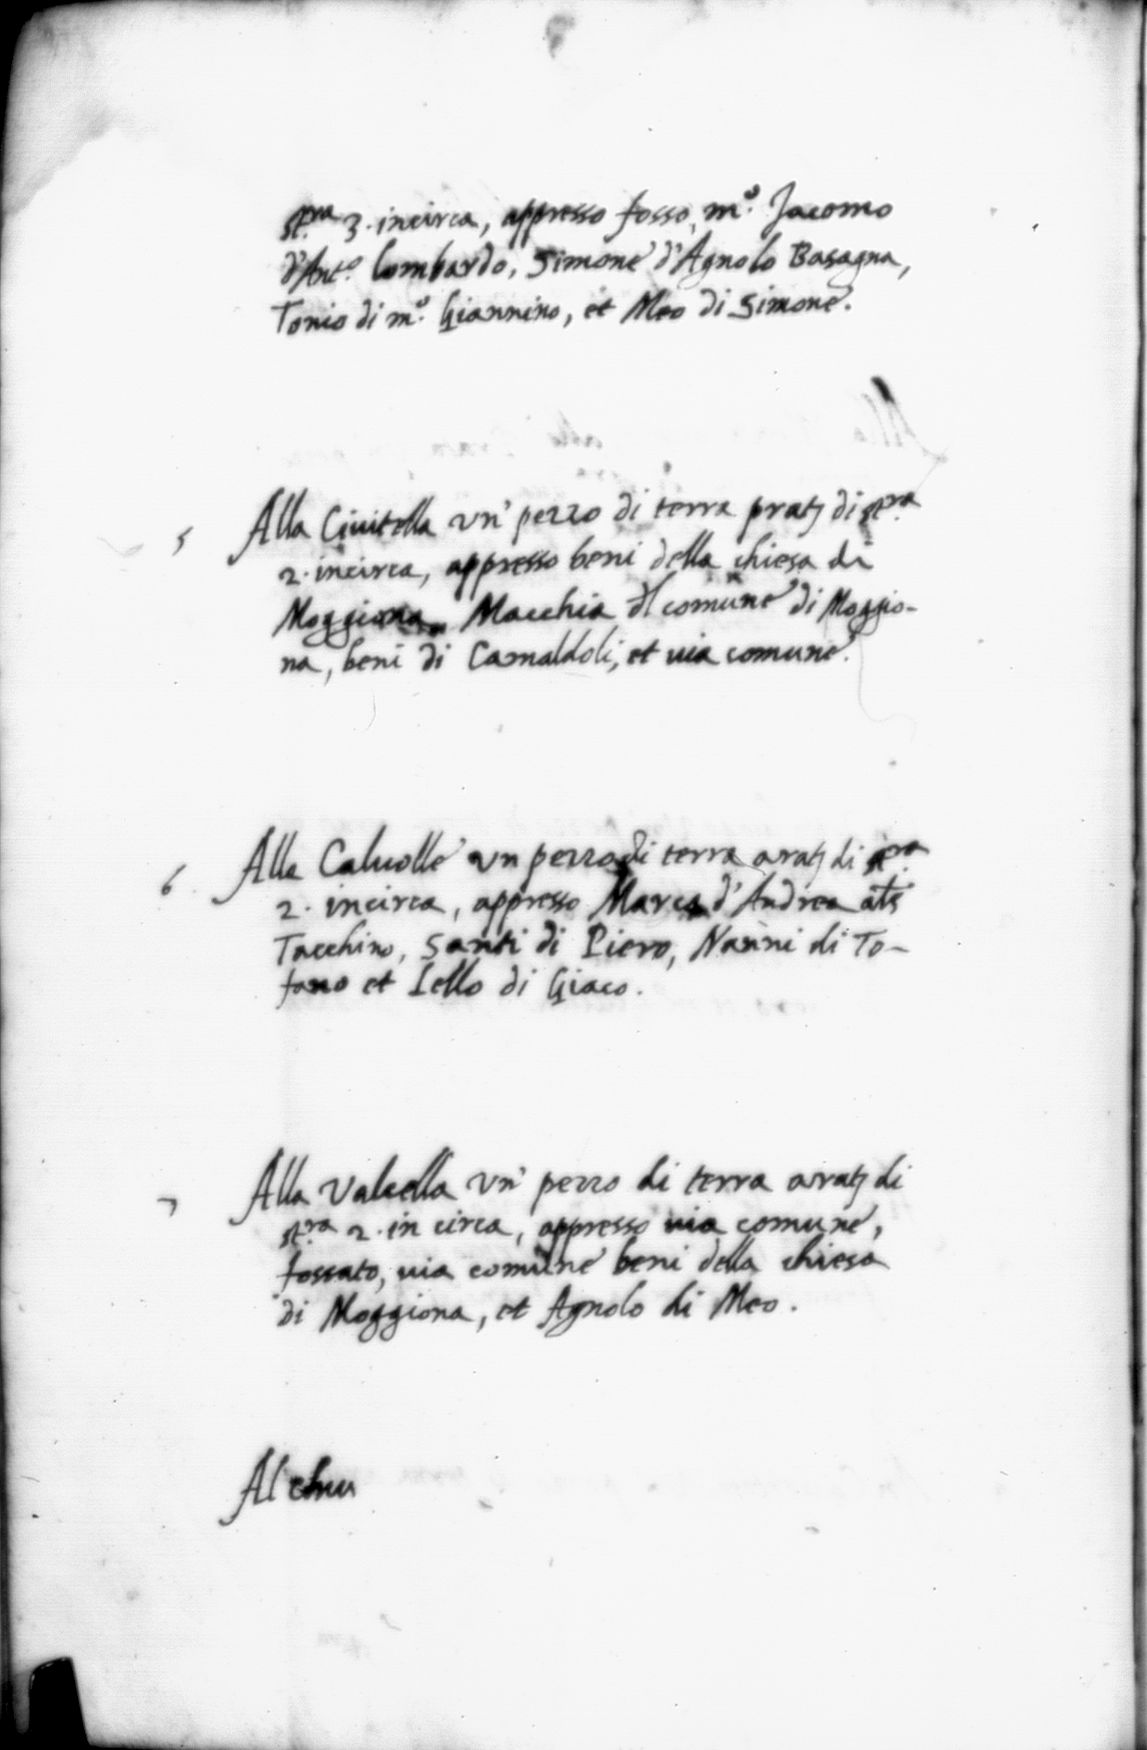 st.ra 3. incirca, appresso fosso, m.o Jacomo
d'Ant.o lombardo, Simone d'Agnolo Basagna,
Tonio di m.o Giannino, et Meo di Simone.
5 Alla Ciuitella vn' pezzo di terra pratꝫ di st.ra
2. incirca, appresso beni della chiesa di
Moggiona, Macchia del comune di Moggio-
na, beni di Camaldoli, et uia comune.
6 Alle Caluolle vn pezzo di terra aratꝫ di st.ra
2. incirca, appresso Marco d'Andrea als
Tacchino, Santi di Piero, Nanni di To-
fano et Lello di Giaco.
7 Alla Valcella vn' pezzo di terra aratꝫ di
st.ra 2. in circa, appresso uia comune,
fossato, uia comune beni della chiesa
di Moggiona, et Agnolo di Meo.
Al